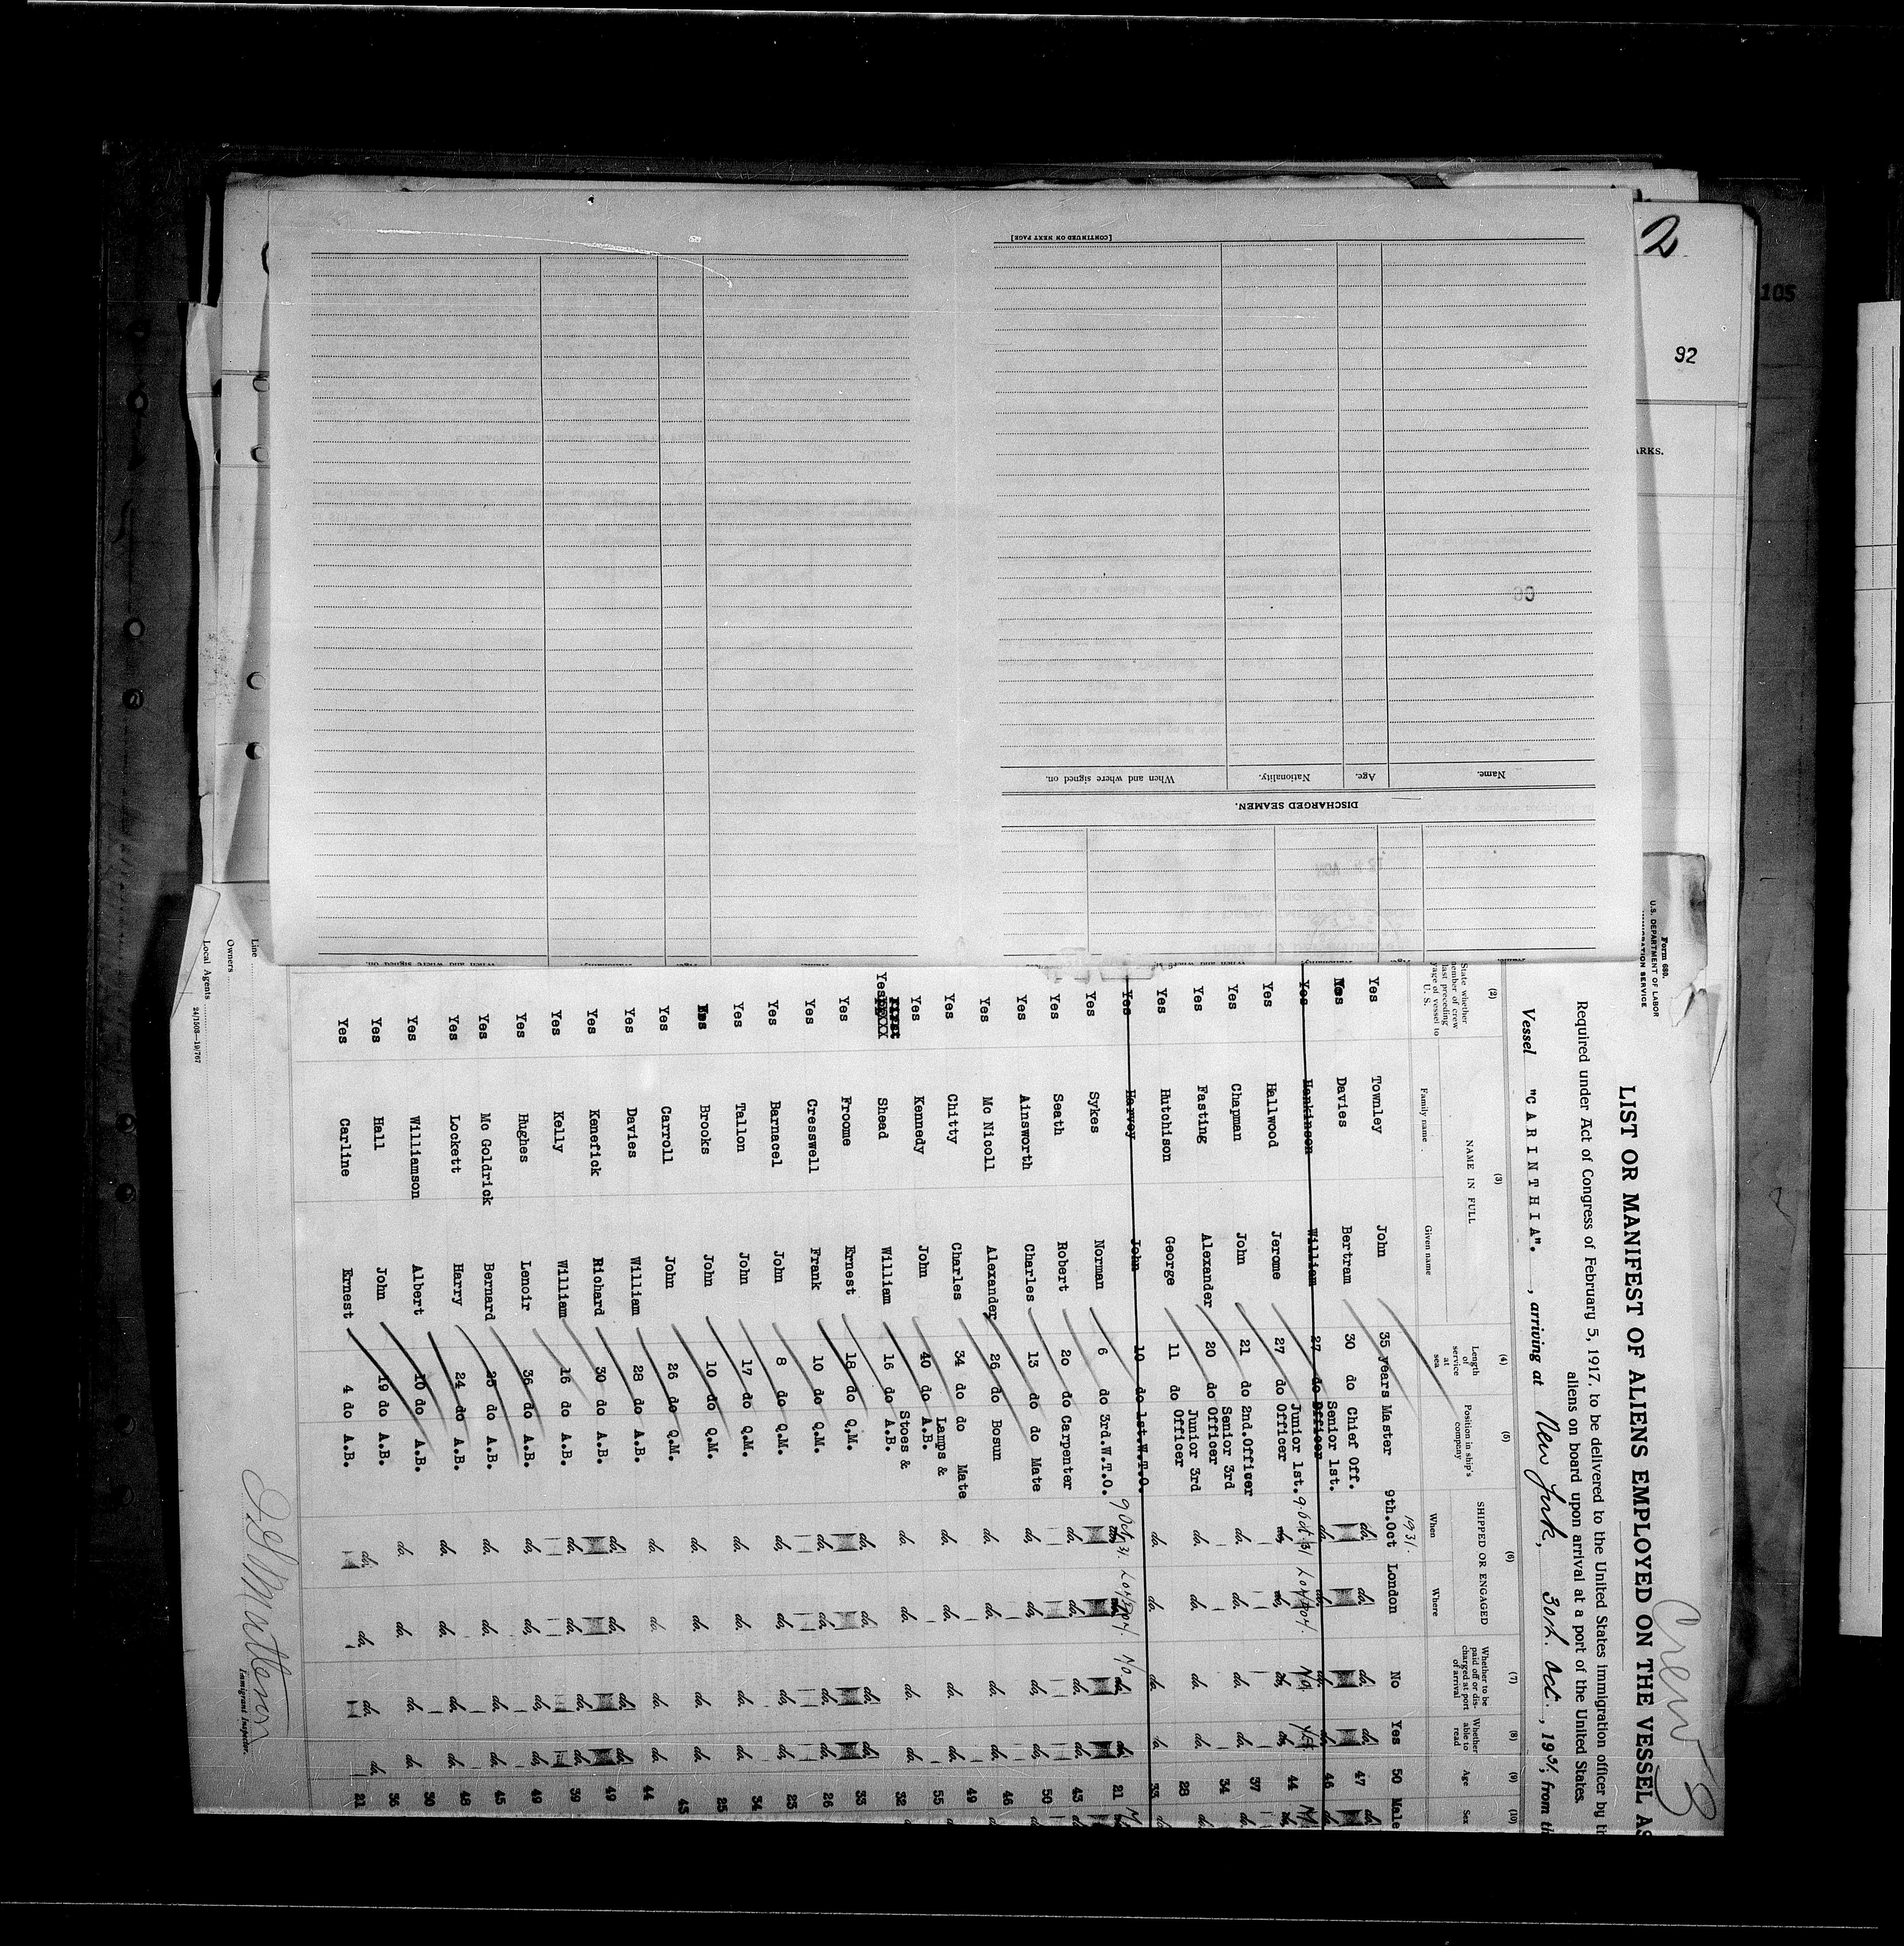 2
105
92
ARKS.
[CONTINUED ON NEXT PAGE]
Name. Age. Nationality. When and where signed on.
DISCHARGED SEAMEN.
Form 680.
U.S. DEPARTMENT OF LABOR
IMMIGRATION SERVICE
Crew
LIST OR MANIFEST OF ALIENS EMPLOYED ON THE VESSEL AS
Required under Act of Congress of February 5, 1917, to be delivered to the United States immigration officer by th
aliens on board upon arrival at a port of the United States.
Vessel "CARINTHIA". , arriving at New York, 30th. Oct. , 1931, from th
(2) (3) (4) (5) (6) (7) (8) (9) (10)
State whether member of crew last preceding voyage of vessel to U. S.
NAME IN FULL
Family name Given name
Length of service at sea
Position in ship's company
SHIPPED OR ENGAGED
When Where
Whether to be paid off or discharged at port of arrival
Whether able to read
Age
Sex
1931.
Yes Townley John 35 years Master 9th.Oct London No Yes 50 Male
Yes Davies Bertram 30 do Chief Off. do. do. do. do. 47 do.
Yes Henkinson William 27 do Senior 1st. Officer do. do. do. do. 46 do.
Yes Hallwood Jerome 27 do Junior 1st. Officer 9.Oct.31 London No Yes 44 M
Yes Chapman John 21 do 2nd.Officer do. do. do. do. 37
Yes Fasting Alexander 20 do Senior 3rd Officer do. do. do. do. 34
Yes Hutchison George 11 do Junior 3rd Officer do. do. do. do. 28
Yes Harvey John 10 do 1st.W.T.O. do. do. do. do. 33
Yes Sykes Norman 6 do 3rd.W.T.O. 9 Oct 31. London. No do. 21 M
Yes Seath Robert 20 do Carpenter do. do. do. do. 43
Yes Ainsworth Charles 13 do do Mate do. do. do. do. 50
Yes Mc Nicoll Alexander 26 do Bosun do. do. do. do. 46
Yes Chitty Charles 34 do do Mate do. do. do. do. 49
Yes Kennedy John 40 do Lamps & A.B. do. do. do. do. 55
Yes Shead William 16 do Stoes & A.B. do. do. do. do. 32
Yes Froome Ernest 18 do Q.M. do. do. do. do. 33
Yes Cresswell Frank 10 do Q.M. do. do. do. do. 26
Yes Barnacel John 8 do Q.M. do. do. do. do. 23
Yes Tallon John 17 do Q.M. do. do. do. do. 34
Yes Brooks John 10 do Q.M. do. do. do. do. 25
Yes Carroll John 26 do Q.M. do. do. do. do. 43
Yes Davies William 28 do A.B. do. do. do. do. 44
Yes Kenefick Richard 30 do A.B. do. do. do. do. 49
Yes Kelly William 16 do A.B. do. do. do. do. 39
Yes Hughes Lenoir 36 do A.B. do. do. do. do. 49
Yes Mc Goldrick Bernard 25 do A.B. do. do. do. do. 45
Yes Lockett Harry 24 do A.B. do. do. do. do. 48
Yes Williamson Albert 10 do A.B. do. do. do. do. 30
Yes Hall John 19 do A.B. do. do. do. do. 36
Yes Carline Ernest 4 do A.B. do. do. do. do. 21
Immigrant Inspector.
Line
Owners
Local Agents
24/1503—19/767